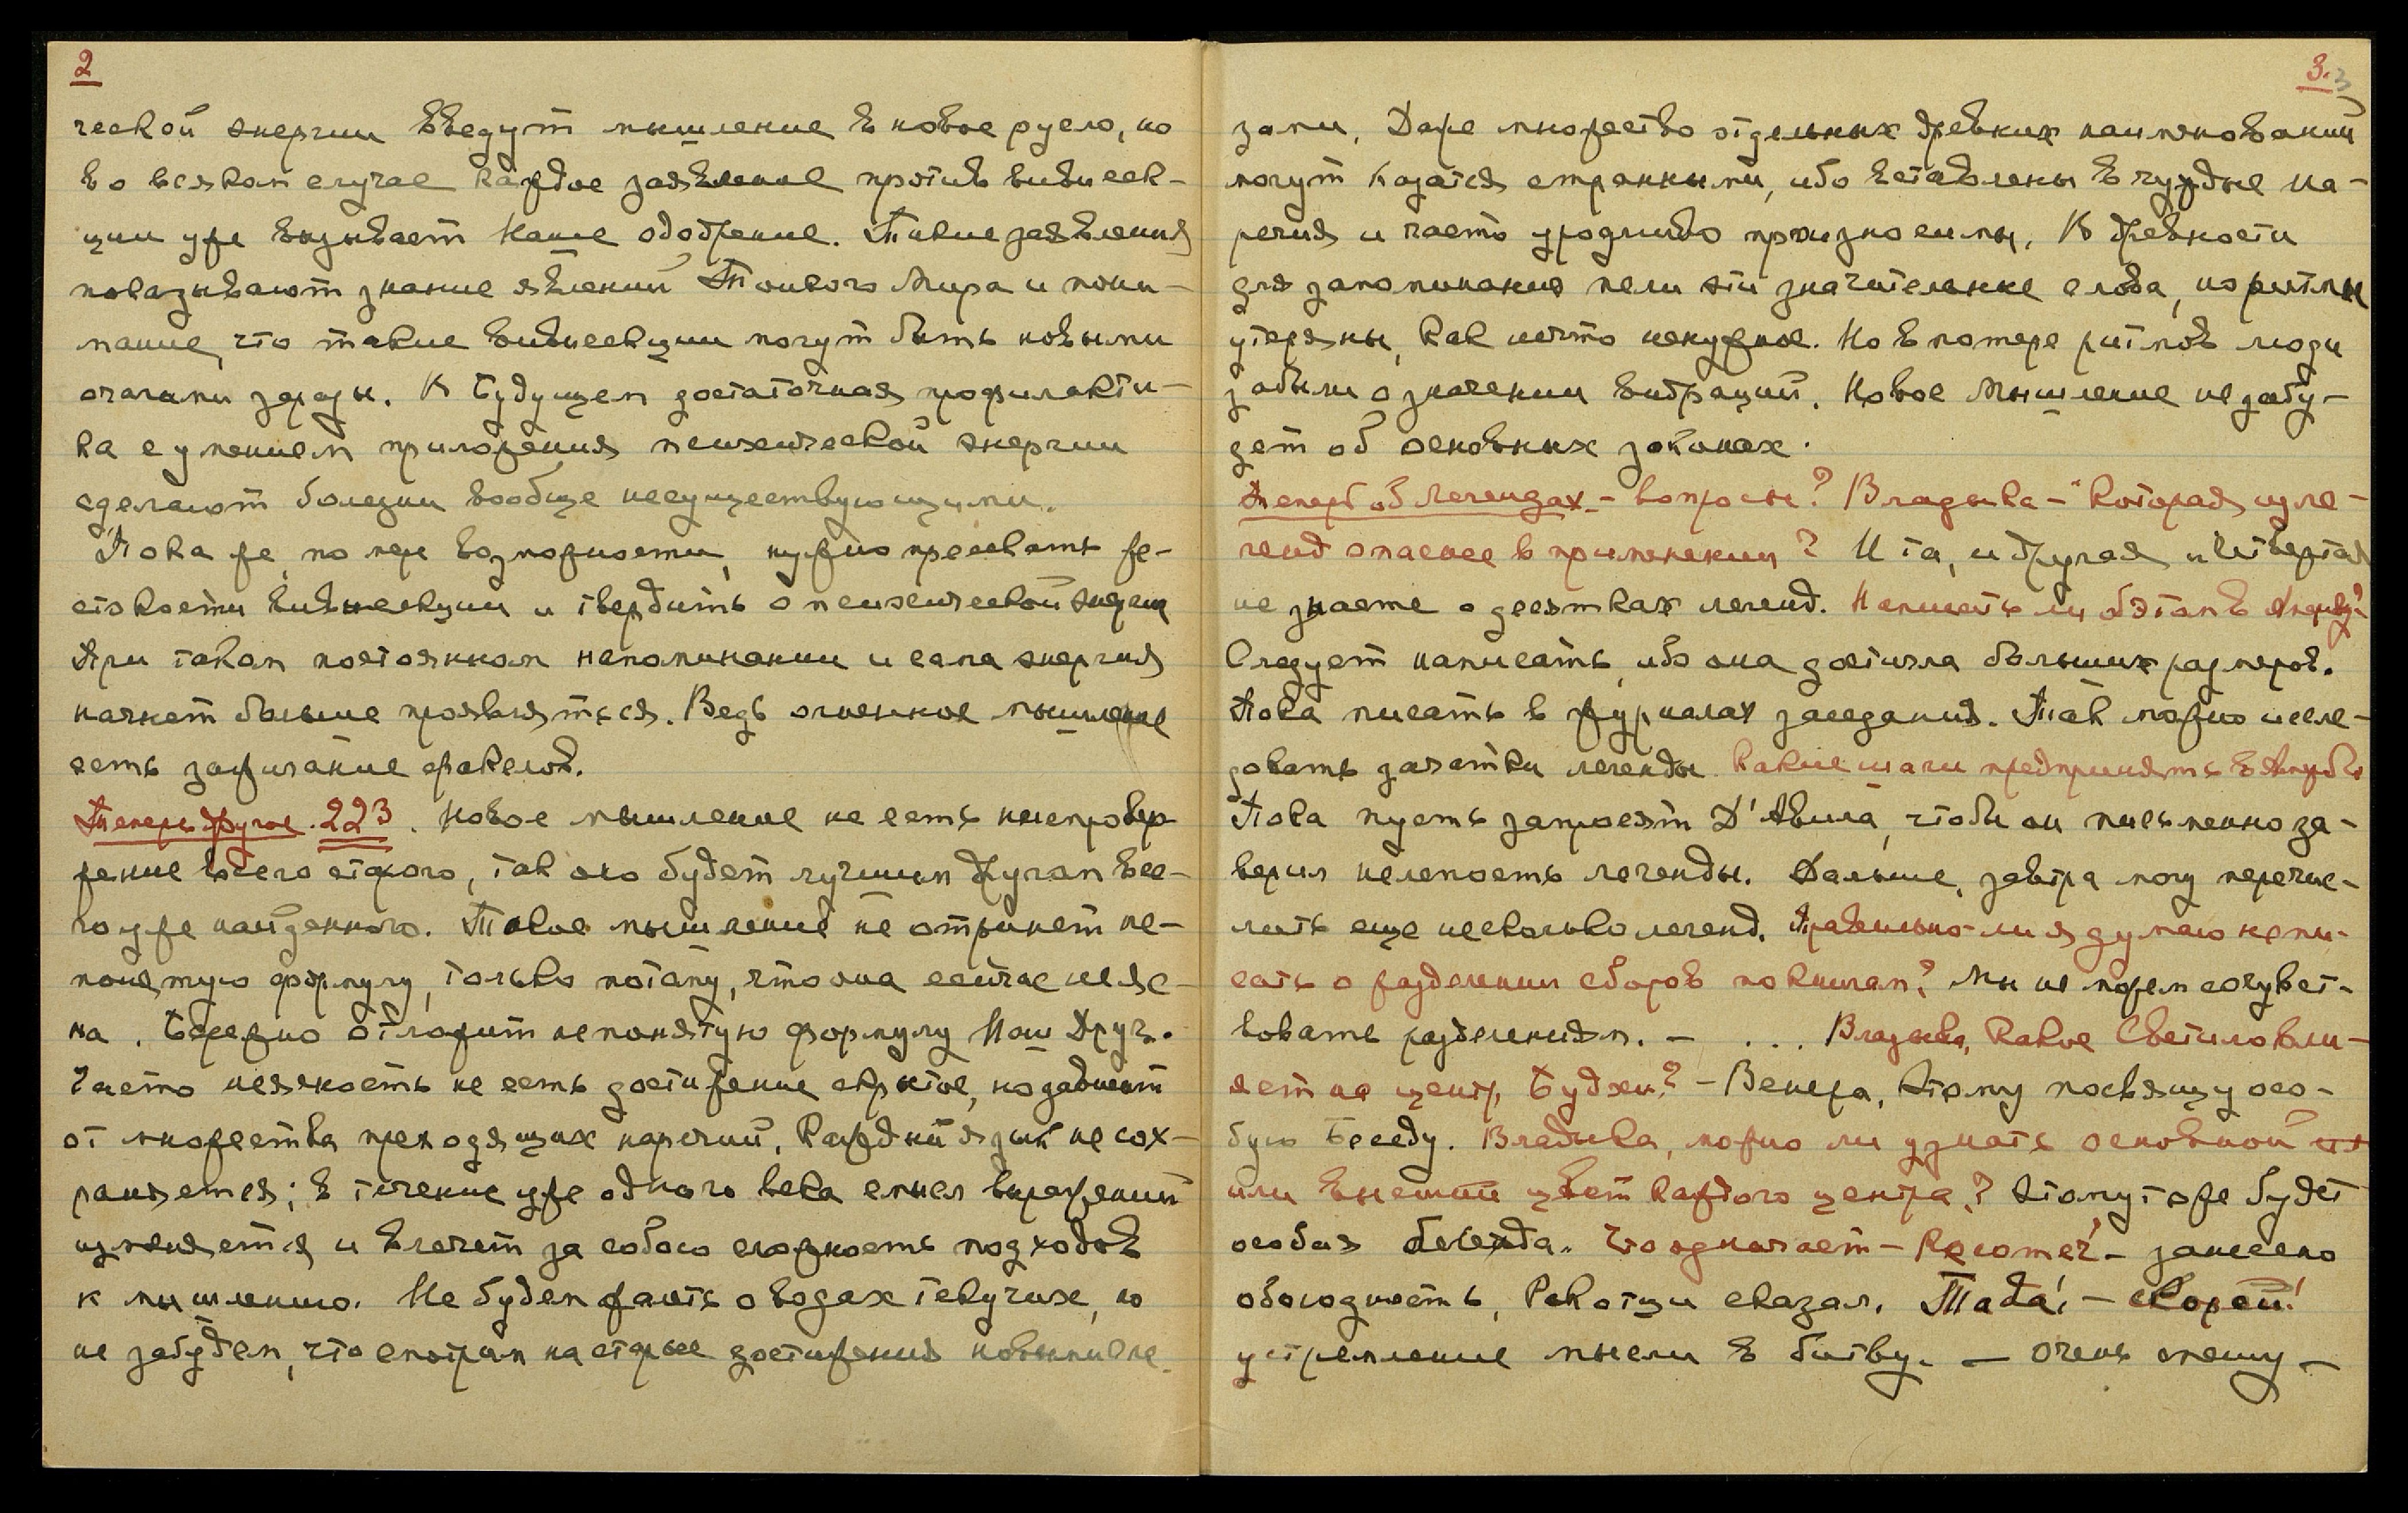 2
ческой энергии введут мышление в новое русло, но
во всяком случае каждое заявление против вивисек-
ции уже вызывает Наше одобрение. Такие заявления
показывают знание явлений Тонкого Мира и пони-
мание, что такие вивисекции могут быть новыми
очагами заразы. В будущем достаточная профилакти-
ка с умением приложения психической энергии
сделают болезни вообще несуществующими.
Пока же, по мере возможности, нужно пресекать же-
стокости вивисекции и твердить о психической энергии
При таком постоянном напоминании и сама энергия
начнет больше проявляться. Ведь огненное мышление
есть зажигание факелов.
Теперь другое. 223. Новое мышление не есть ниспровер-
жение всего старого, так оно будет лучшим другом все-
го уже найденного. Такое мышление не отринет не-
понятую формулу, только потому, что она сейчас неяс-
на. Бережно отложит непонятую формулу Наш Друг.
Часто неясность не есть достижение скрытое, но зависит
от множества преходящих наречий. Каждый язык не сох-
раняется; в течение уже одного века смысл выражений
изменяется и влечет за собою сложность подходов
к мышлению. Не будем жалеть о водах текучих, но
не забудем, что смотрим на старые достижения новыми гла-
3. 3
зами. Даже множество отдельных древних наименований
могут казаться странными, ибо вставлены в чуждые на-
речия и часто уродливо произносимы. В древности
для запоминания пели эти значительные слова, но ритмы
утеряны, как нечто ненужное. Но в потере ритмов люди
забыли о значении вибраций. Новое Мышление не забу-
дет об основных законах.
Теперь об легендах - вопросы? Владыка - которая из ле-
генд опаснее в применении? И та, и другая и четвертая
не знаете о десятках легенд. Написать ли об этом в Америку?
Следует написать, ибо она достигла больших размеров.
Пока писать в журналах заседания. Так можно иссле-
довать зачатки легенды. Какие шаги предпринять в
Пока пусть запросят Д'Авила, чтобы он письменно за-
верил нелепость легенды. Дальше, завтра могу перечис-
лить еще несколько легенд. Правильно-ли я думаю не пи-
сать о разделении сборов по книгам? Мы не можем сочувст-
вовать разделениям. - ... Владыка, какое Светило вли-
яет на центр Будхи? - Венера, этому посвящу осо-
бую Беседу. Владыка, можно ли узнать основной
или внешний цвет каждого центра? Этому тоже будет
особая беседа. Что означает - - занесено
обоюдность, Ракоци сказал. Тада! - скорей!
устремление мысли в битву. - Очень спешу -